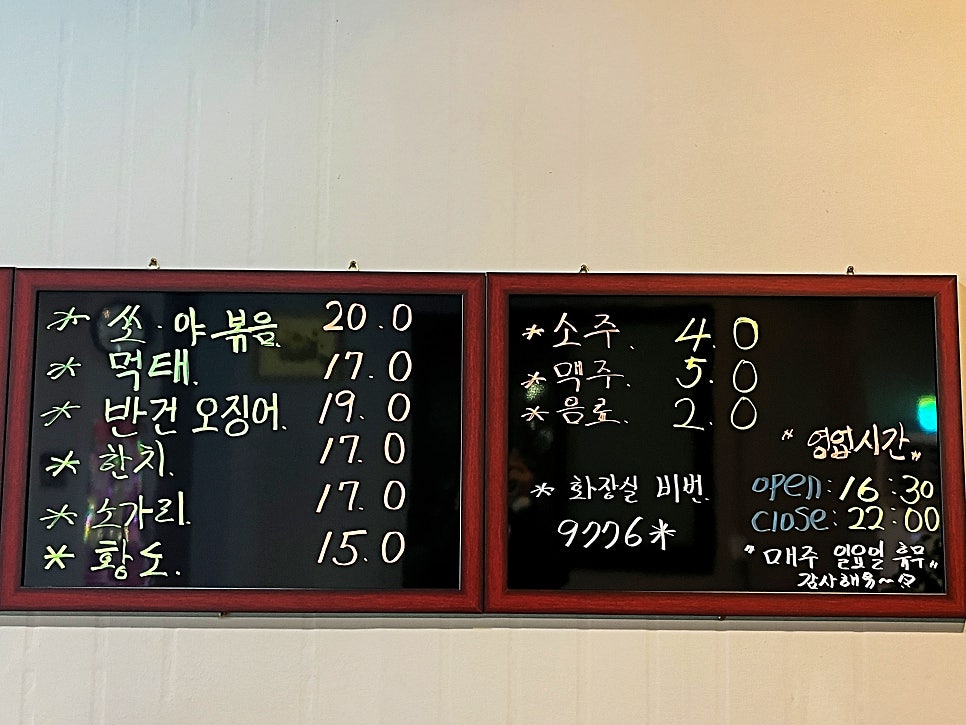 * 쏘·야볶음 20.0
* 먹태. 17.0
* 반건 오징어. 19.0
* 한치. 17.0
* 노가리. 17.0
* 황도. 15.0
* 소주. 4.0
* 맥주. 5.0
* 음료. 2.0
* 화장실 비번.
9776*
"영업시간"
open: 16:30
close: 22:00
"매주 일요일 휴무"
감사해유~♡